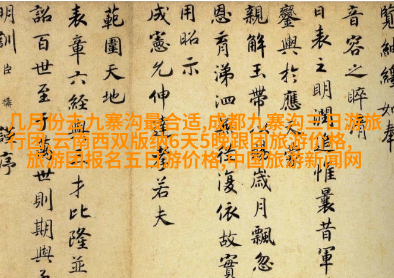 几月份去九寨沟最合适,成都九寨沟三日游旅
行团,云南西双版纳6天5晚跟团旅游价格,
旅游团报名五日游价格,中国旅游新闻网
緬如奉
音容之睟
日表之明 惟曩昔軍
鑾輿於應天
親解玉 歲月飄忽
恩育涕泗 復依故實
用昭示
成憲允伸 若夫
範圍天地
表章六經 才比隆並
詔百世至于萬世則期與
明訓臣 謹序